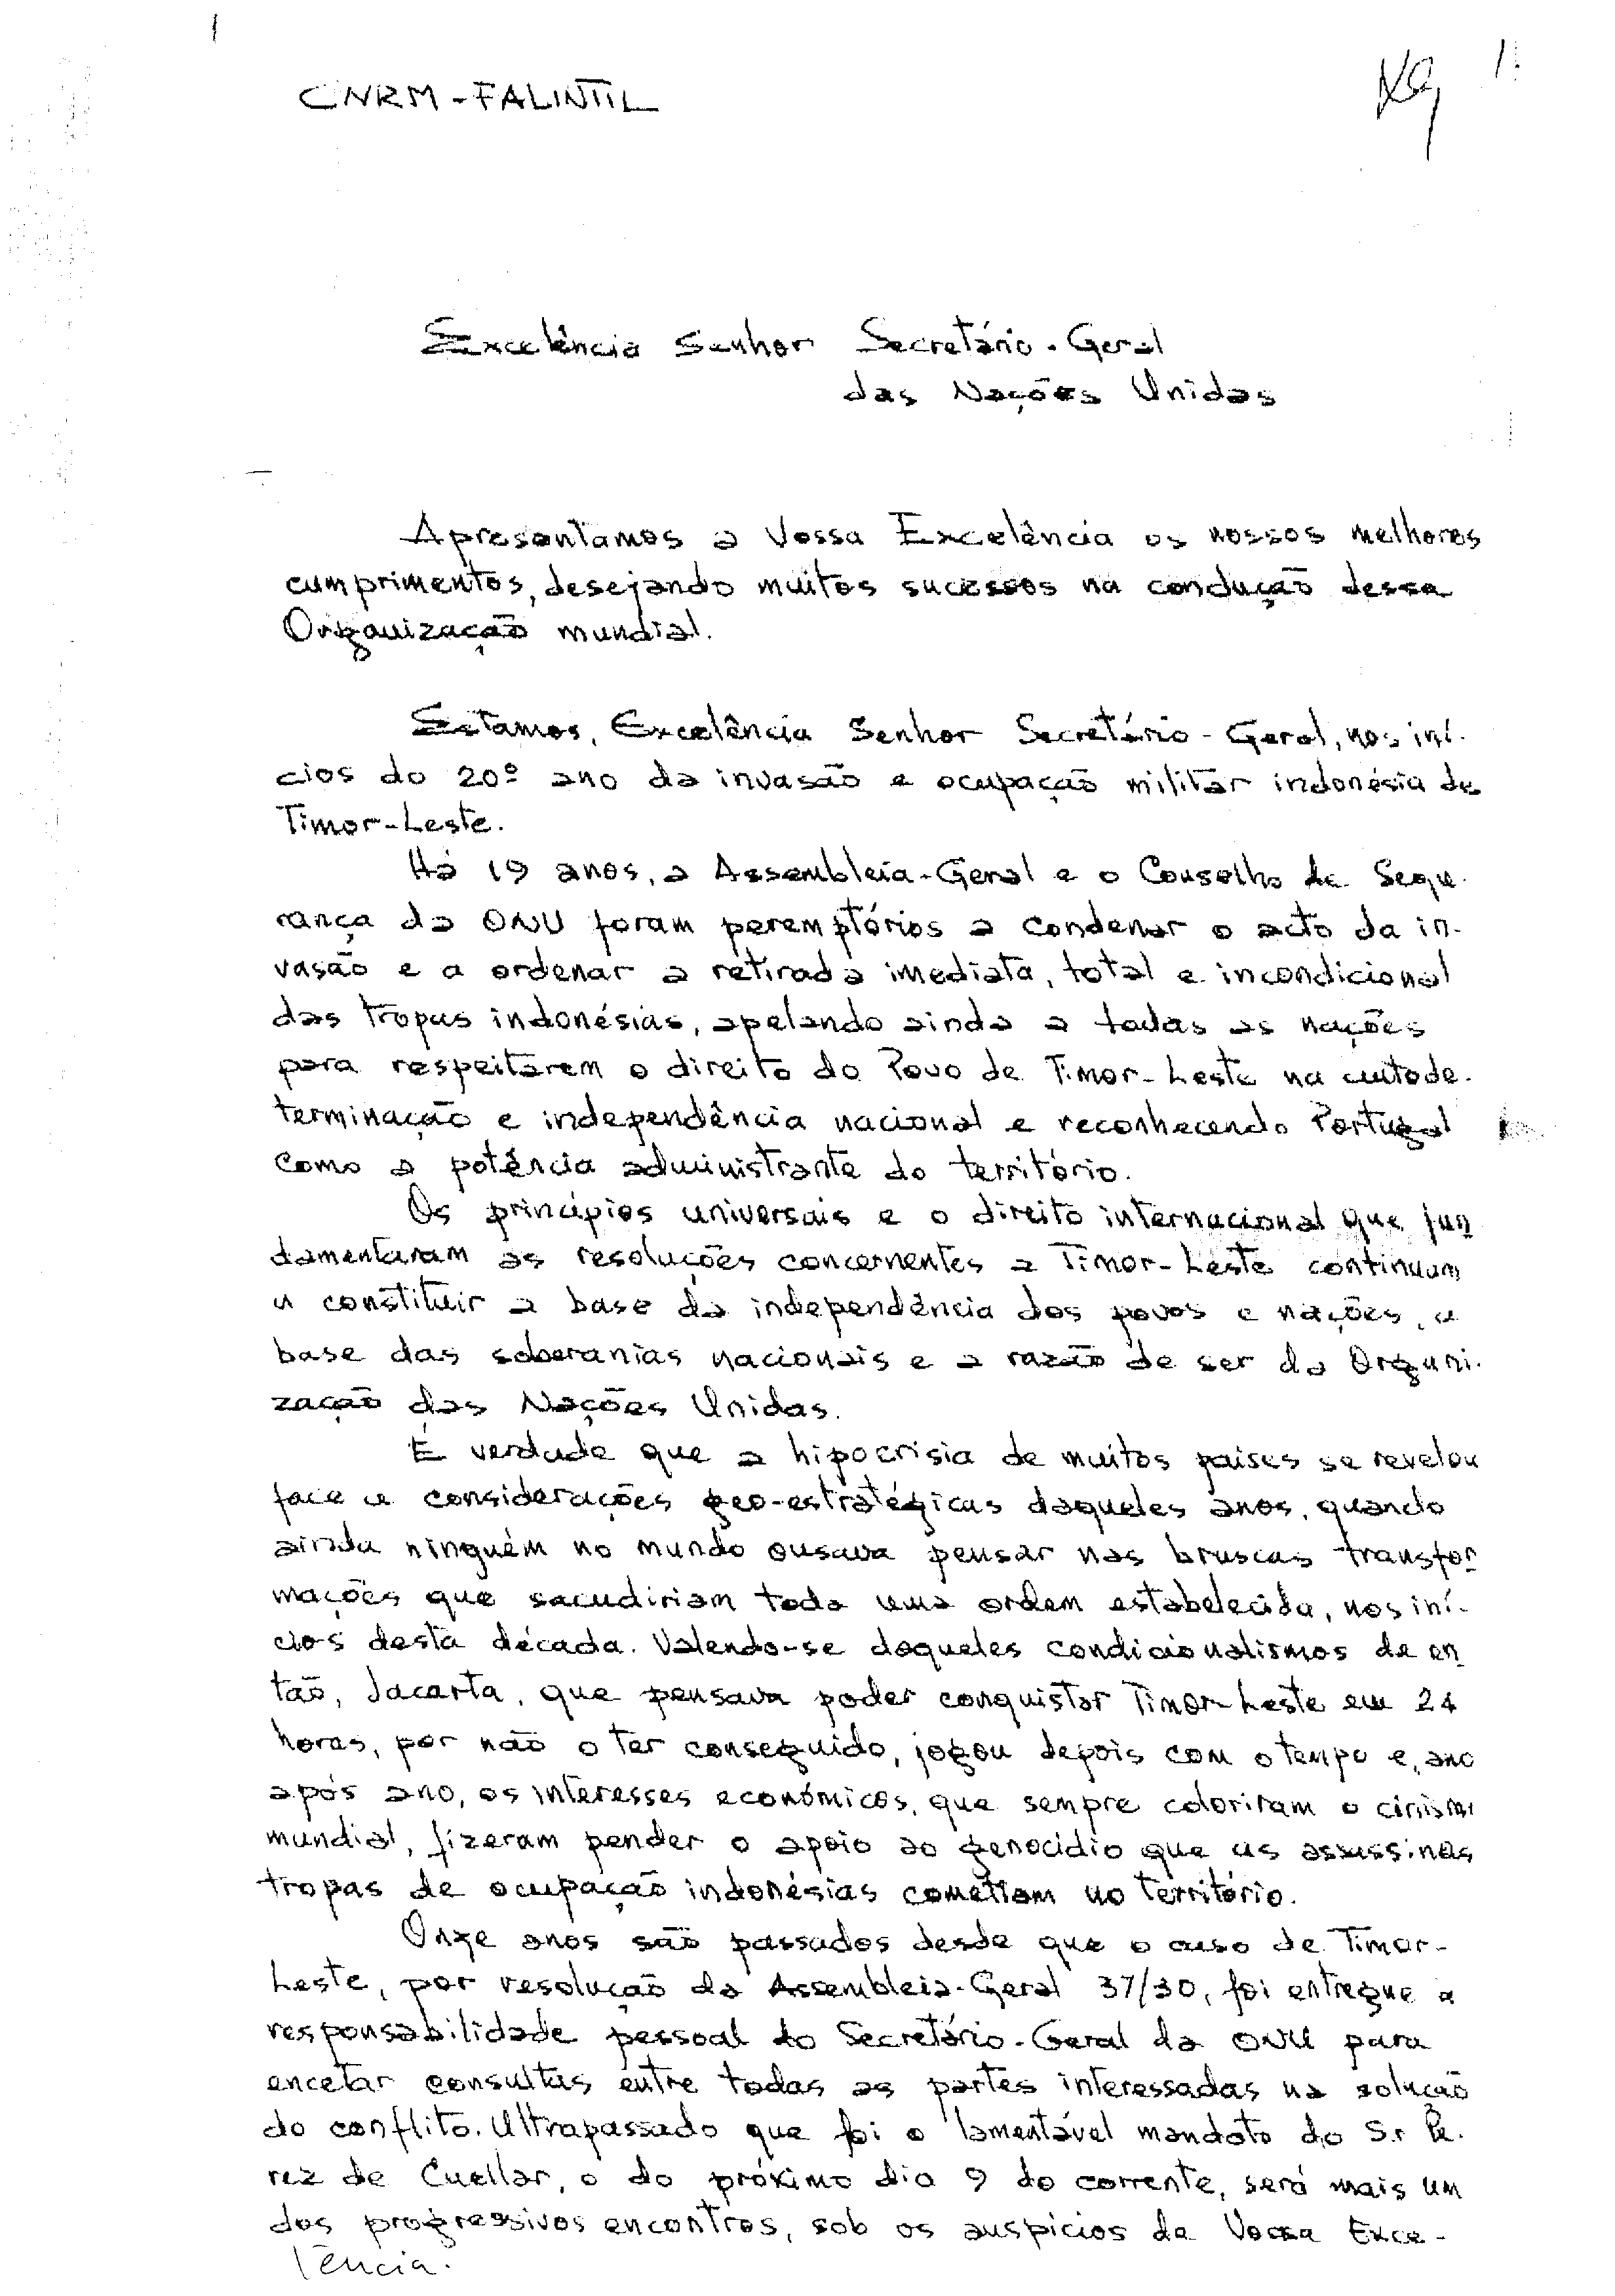 CNRM - FALINTIL
1
Excelência Senhor Secretário-Geral
das Nações Unidas
Apresentamos a Vossa Excelência os nossos melhores
cumprimentos, desejando muitos sucessos na condução dessa
Organização mundial.
Estamos, Excelência Senhor Secretário-Geral, nos iní-
cios do 20º ano da invasão e ocupação militar indonésia de
Timor-Leste.
Há 19 anos, a Assembleia-Geral e o Conselho de Segu-
rança da ONU foram peremptórios a condenar o acto da in-
vasão e a ordenar a retirada imediata, total e incondicional
das tropas indonésias, apelando ainda a todas as nações
para respeitarem o direito do Povo de Timor-Leste na autode-
terminação e independência nacional e reconhecendo Portugal
como a potência administrante do território.
Os princípios universais e o direito internacional que fun
damentaram as resoluções concernentes a Timor-Leste continuam
a constituir a base da independência dos povos e nações, a
base das soberanias nacionais e a razão de ser da Organi-
zação das Nações Unidas.
É verdade que a hipocrisia de muitos países se revelou
face a considerações geo-estratégicas daqueles anos, quando
ainda ninguém no mundo ousava pensar nas bruscas transfor
mações que sacudiriam toda uma ordem estabelecida, nos iní-
cios desta década. Valendo-se daqueles condicionalismos de en
tão, Jacarta, que pensava poder conquistar Timor-Leste em 24
horas, por não o ter conseguido, jogou depois com o tempo e, ano
após ano, os interesses económicos, que sempre coloriram o cinismo
mundial, fizeram pender o apoio ao genocídio que as assassinas
tropas de ocupação indonésias cometiam no território.
Onze anos são passados desde que o caso de Timor-
Leste, por resolução da Assembleia-Geral 37/30, foi entregue a
responsabilidade pessoal do Secretário-Geral da ONU para
encetar consultas entre todas as partes interessadas na solução
do conflito. Ultrapassado que foi o lamentável mandato do Sr Pe-
rez de Cuellar, o do próximo dia 9 do corrente, será mais um
dos progressivos encontros, sob os auspícios de Vossa Exce-
lência.